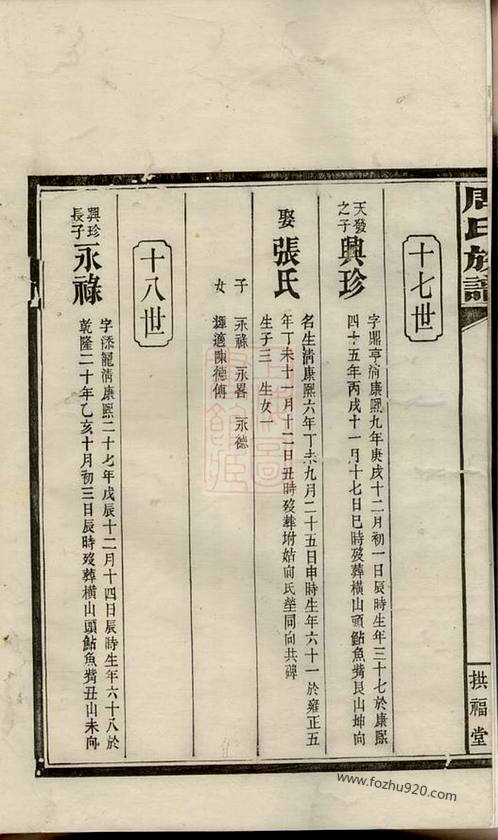 周氏族譜
拱福堂
十七世
天發之子
興珍
字鼎亨淸康熙九年庚戌十二月初一日辰時生年三十七於康熙
四十五年丙戌十一月十七日巳時歿葬橫山頭鮎魚嘴艮山坤向
娶
張氏
名生淸康熙六年丁未九月二十五日申時生年六十一於雍正五
年丁未十一月十二日丑時歿葬坿姑向氏塋同向共碑
生子三 生女一
子 永祿 永畧 永德
女 適陳德傅
十八世
興珍長子
永祿
字 淸康熙二十七年戊辰十二月十四日辰時生年六十八於
乾隆二十年乙亥十月初三日辰時歿葬橫山頭鮎魚嘴丑山未向
www.fozhu920.com